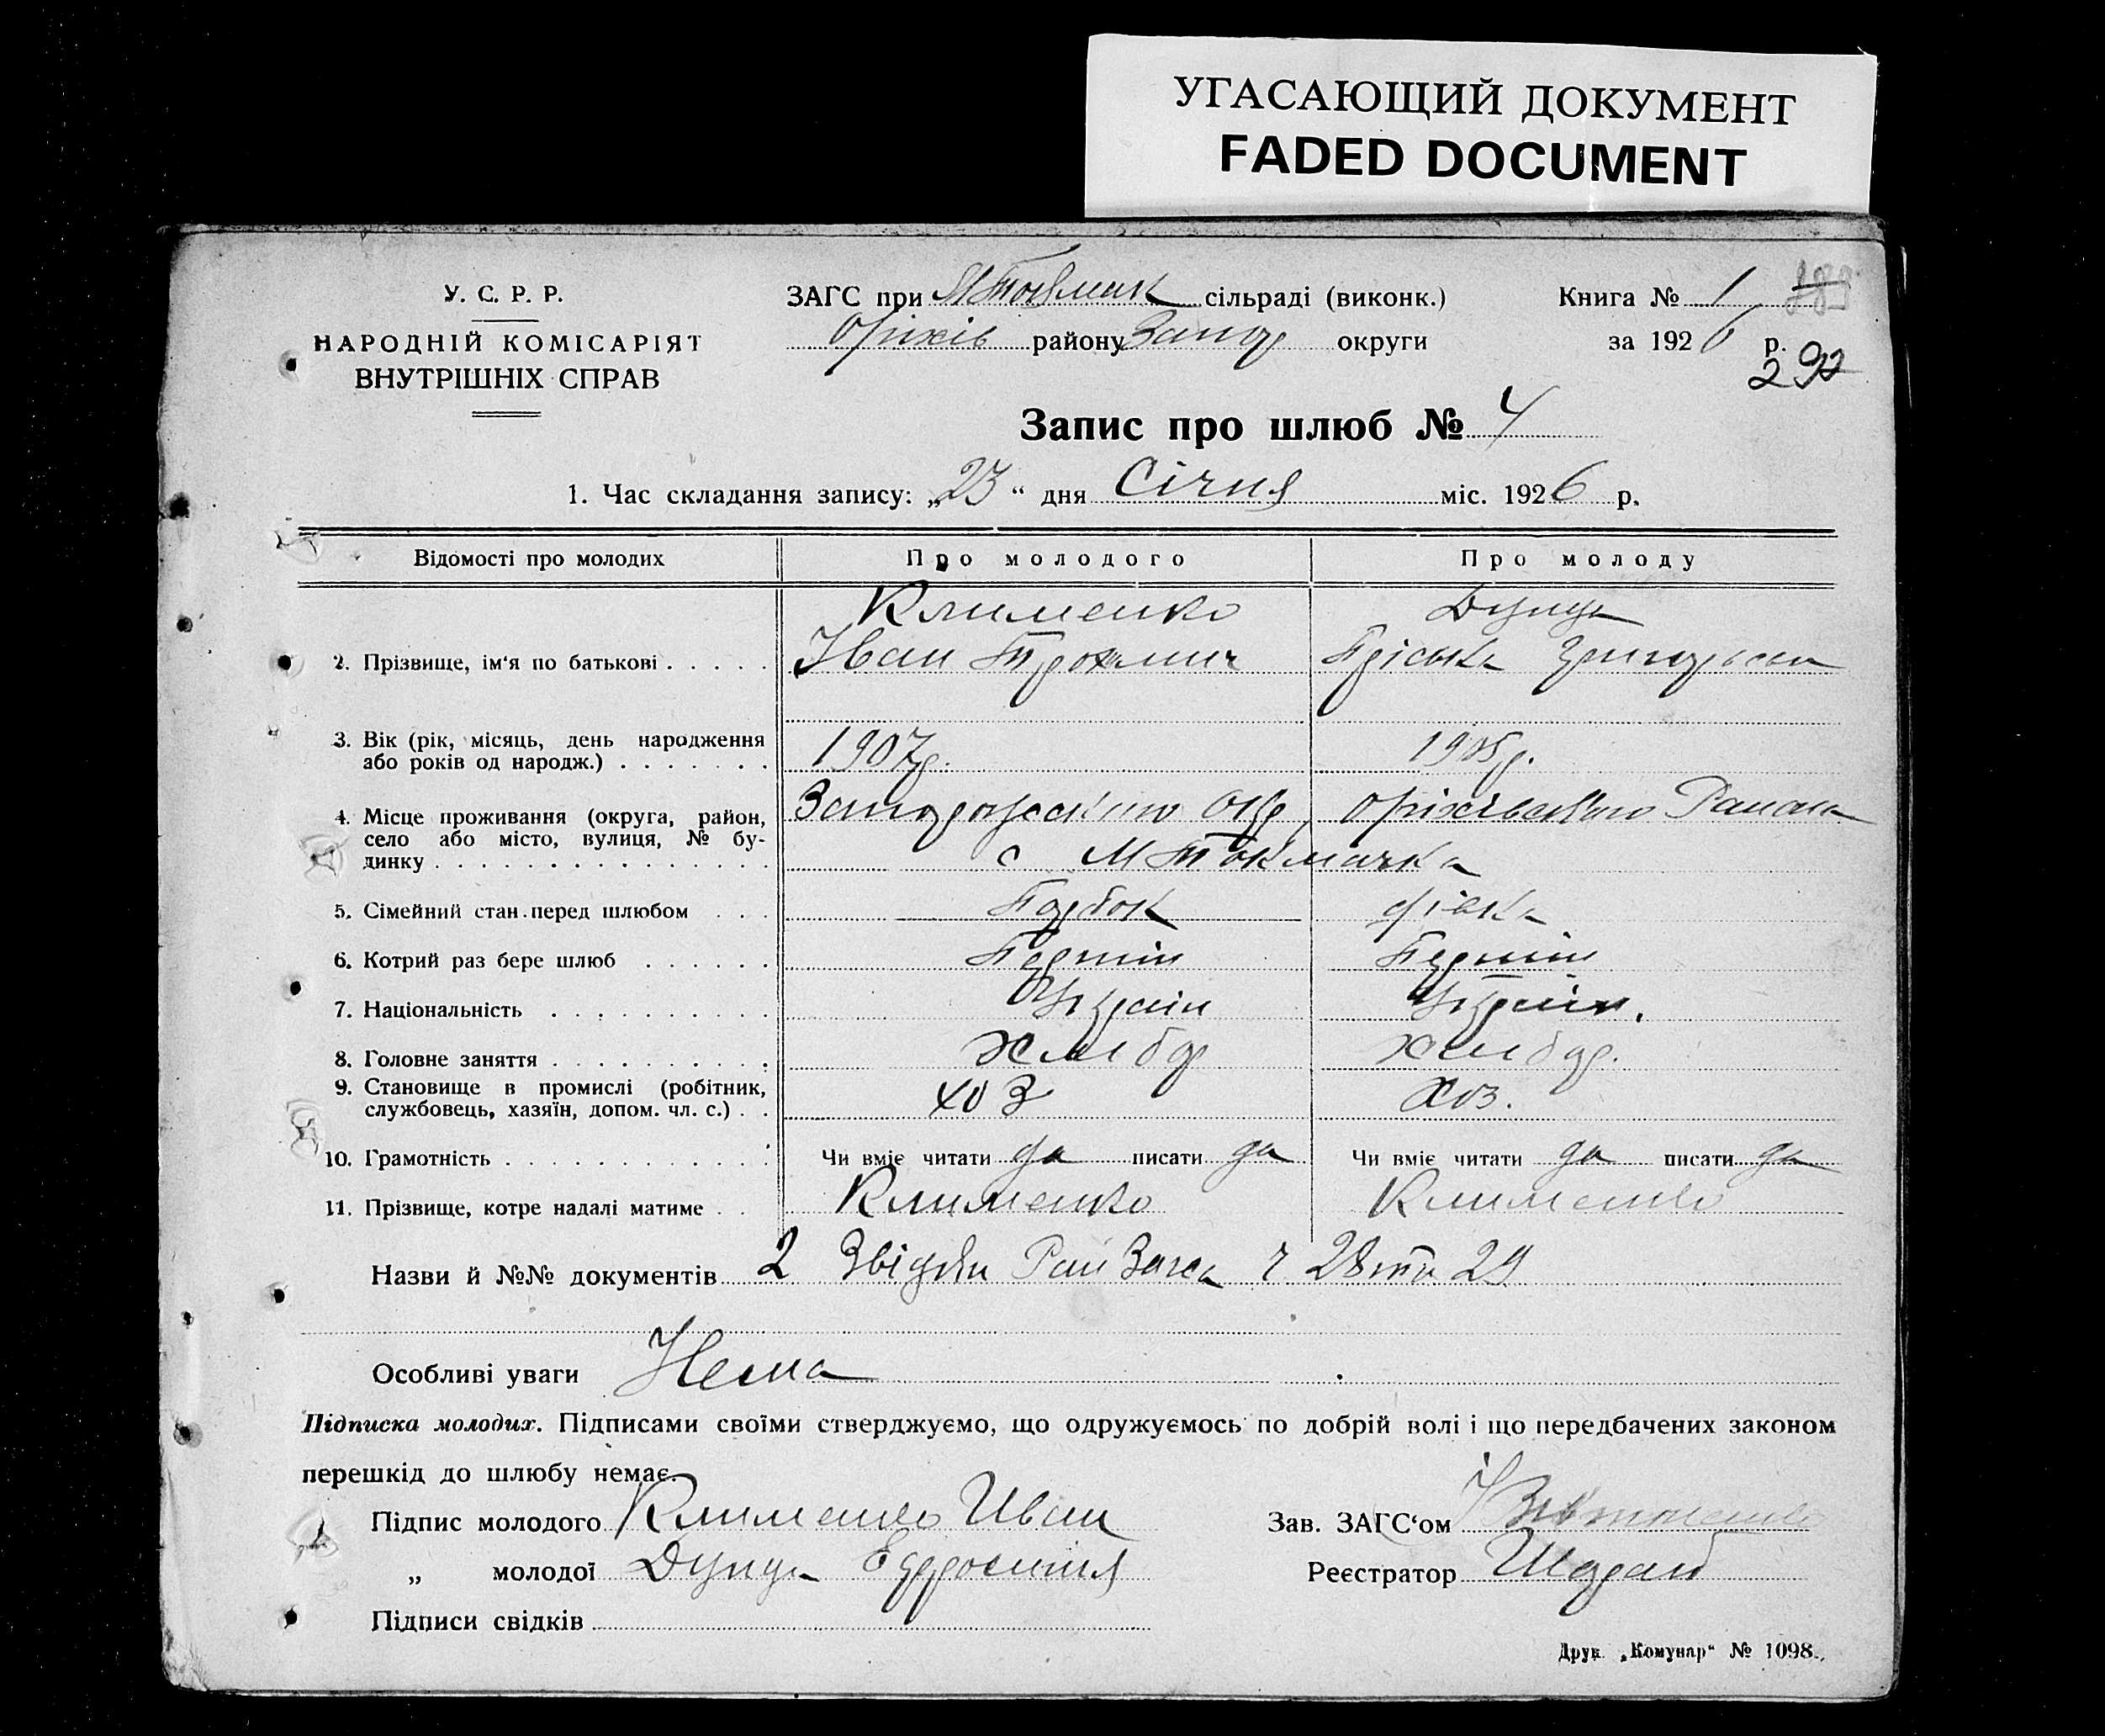 УГАСАЮЩИЙ ДОКУМЕНТ
FADED DOCUMENT
У. С. Р. Р.
НАРОДНІЙ КОМІСАРІЯТ
ВНУТРІШНІХ СПРАВ
ЗАГС при МТокмак сільраді (виконк.)
Оріхів району Запор округи
Книга № 1
за 1926 р.
292
Запис про шлюб № 4
1. Час складання запису: „23“ дня Січня міс. 1926 р.
Відомості про молодих Про молодого Про молоду
Клименко Дупда
2. Прізвище, ім'я по батькові . . . . . Іван Трохимич Пріська Григорьевна
3. Вік (рік, місяць, день народження
або років од народж.) . . . . . . . 1907р. 1905р.
4. Місце проживання (округа, район, Запорожского Окр, Оріхівського Района
село або місто, вулиця, № бу-
динку . . . . . . . . . . . . . . . с МТокмачка
5. Сімейний стан перед шлюбом . . . Парубок дівка
6. Котрий раз бере шлюб . . . . . . Першій Першій
7. Національність . . . . . . . . . . Украін Украін.
8. Головне заняття . . . . . . . . . . Хлибор Хлибор.
9. Становище в промислі (робітник,
службовець, хазяїн, допом. чл. с.) . . хоз Хоз.
10. Грамотність . . . . . . . . . . . . Чи вміє читати да писати да Чи вміє читати да писати да
11. Прізвище, котре надалі матиме . . . Клименко Клименко
Назви й №№ документів 2 Звідки Рай Загса ч 28 та 29
Особливі уваги Нема
Підписка молодих. Підписами своїми стверджуємо, що одружуємось по добрій волі і що передбачених законом
перешкід до шлюбу немає.
Підпис молодого Клименко Иван Зав. ЗАГС‘ом
„ молодої Дупда Ефросиния Реєстратор
Підписи свідків
Друк. „Комунар“ № 1098.